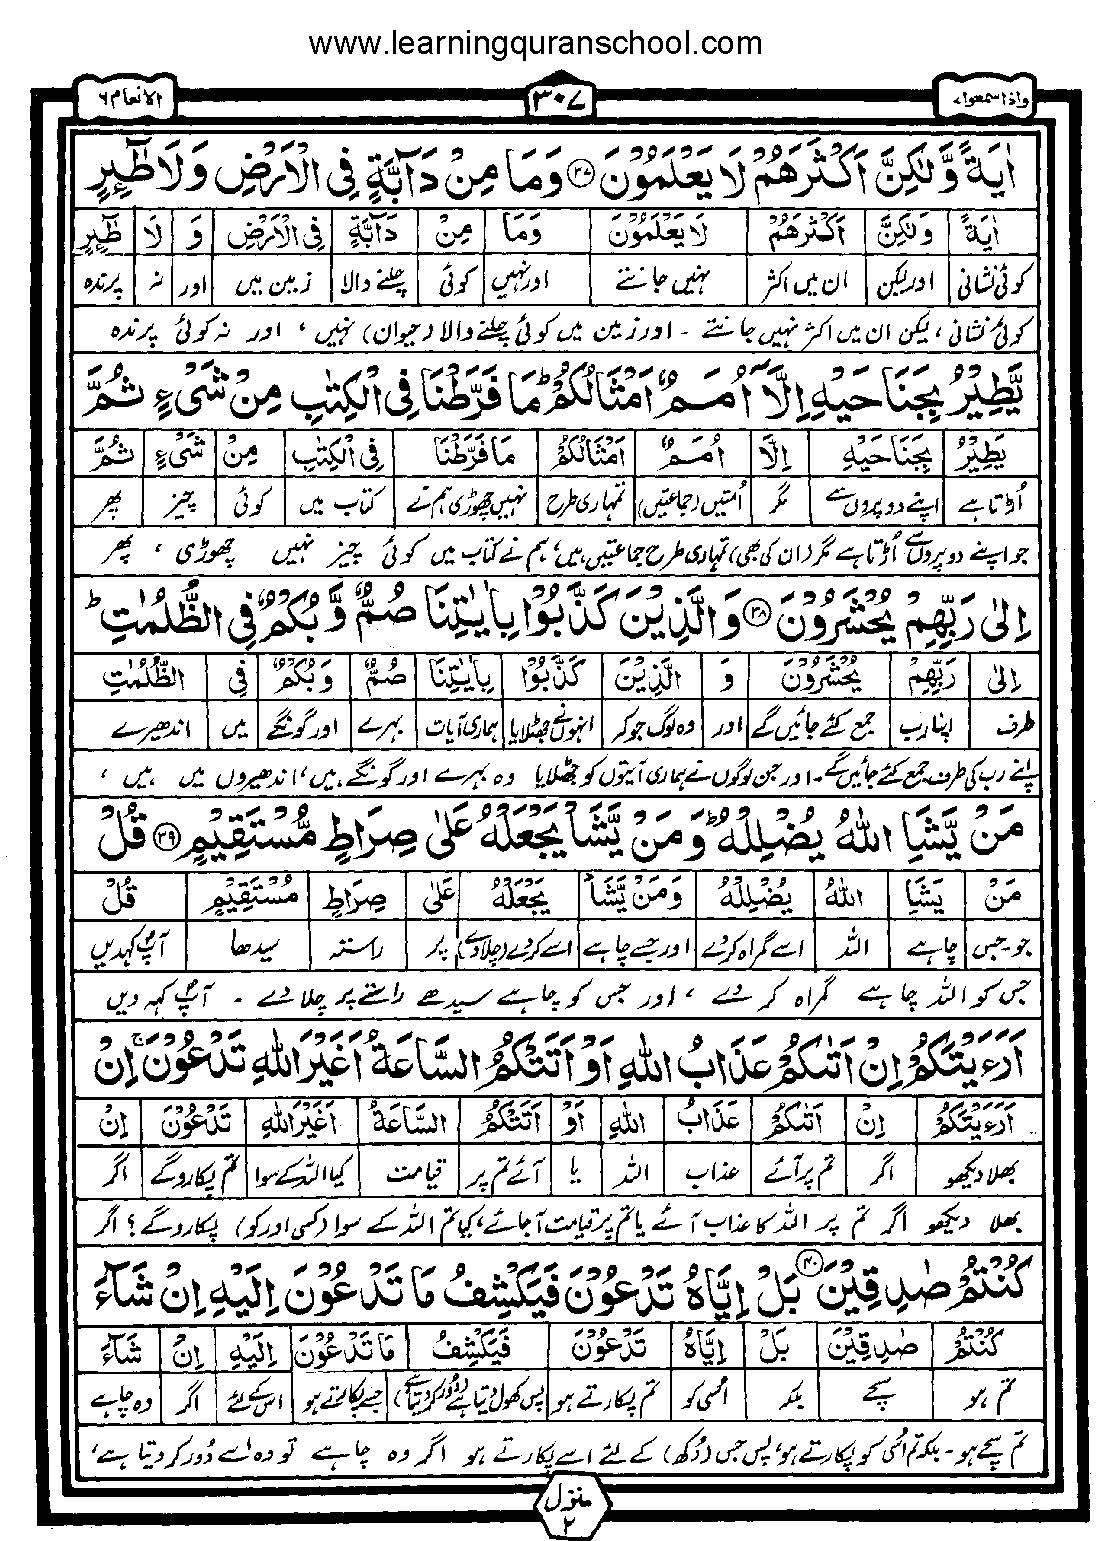 www.learningquranschool.com
واذا سمعوا۷ ۳۰۷ الانعام۶
اٰيَةً وَّلٰكِنَّ اَكْثَرَهُمْ لَا يَعْلَمُوْنَ ۳۷ وَمَا مِنْ دَآبَّةٍ فِى الْاَرْضِ وَلَا طٰٓئِرٍ
اٰيَةً وَلٰكِنَّ اَكْثَرَهُمْ لَا يَعْلَمُوْنَ وَمَا مِنْ دَآبَّةٍ فِى الْاَرْضِ وَ لَا طٰٓئِرٍ
کوئی نشانی اور لیکن ان میں اکثر نہیں جانتے اور نہیں کوئی چلنے والا زمین میں اور نہ پرندہ
کوئی نشانی، لیکن ان میں اکثر نہیں جانتے - اور زمین میں کوئی چلنے والا (حیوان) نہیں، اور نہ کوئی پرندہ
يَّطِيْرُ بِجَنَاحَيْهِ اِلَّآ اُمَمٌ اَمْثَالُكُمْ ؕ مَا فَرَّطْنَا فِى الْكِتٰبِ مِنْ شَىْءٍ ثُمَّ
يَطِيْرُ بِجَنَاحَيْهِ اِلَّا اُمَمٌ اَمْثَالُكُمْ مَا فَرَّطْنَا فِى الْكِتٰبِ مِنْ شَىْءٍ ثُمَّ
اُڑتا ہے اپنے دو پروں سے مگر اُمتیں (جماعتیں) تمہاری طرح نہیں چھوڑی ہم نے کتاب میں کوئی چیز پھر
جو اپنے دو پروں سے اُڑتا ہے مگر (ان کی بھی) تمہاری طرح جماعتیں ہیں، ہم نے کتاب میں کوئی چیز نہیں چھوڑی، پھر
اِلٰى رَبِّهِمْ يُحْشَرُوْنَ ۳۸ وَالَّذِيْنَ كَذَّبُوْا بِاٰيٰتِنَا صُمٌّ وَّبُكْمٌ فِى الظُّلُمٰتِ ؕ
اِلٰى رَبِّهِمْ يُحْشَرُوْنَ وَ الَّذِيْنَ كَذَّبُوْا بِاٰيٰتِنَا صُمٌّ وَبُكْمٌ فِى الظُّلُمٰتِ
طرف اپنا رب جمع کئے جائیں گے اور وہ لوگ جو کہ انہوں نے جھٹلایا ہماری آیات بہرے اور گونگے میں اندھیرے
اپنے رب کی طرف جمع کئے جائیں گے۔ اور جن لوگوں نے ہماری آیتوں کو جھٹلایا وہ بہرے اور گونگے ہیں، اندھیروں میں ہیں،
مَنْ يَّشَاِ اللّٰهُ يُضْلِلْهُ ؕ وَمَنْ يَّشَاْ يَجْعَلْهُ عَلٰى صِرَاطٍ مُّسْتَقِيْمٍ ۳۹ قُلْ
مَنْ يَشَاِ اللّٰهُ يُضْلِلْهُ وَمَنْ يَّشَاْ يَجْعَلْهُ عَلٰى صِرَاطٍ مُسْتَقِيْمٍ قُلْ
جو-جس چاہے اللہ اسے گمراہ کردے اور جسے چاہے اسے کردے (چلادے) پر راستہ سیدھا آپ کہدیں
جس کو اللہ چاہے گمراہ کر دے، اور جس کو چاہے سیدھے راستے پر چلا دے - آپ کہہ دیں
اَرَءَيْتَكُمْ اِنْ اَتٰىكُمْ عَذَابُ اللّٰهِ اَوْ اَتَتْكُمُ السَّاعَةُ اَغَيْرَ اللّٰهِ تَدْعُوْنَ ۚ اِنْ
اَرَءَيْتَكُمْ اِنْ اَتٰىكُمْ عَذَابُ اللّٰهِ اَوْ اَتَتْكُمُ السَّاعَةُ اَغَيْرَ اللّٰهِ تَدْعُوْنَ اِنْ
بھلا دیکھو اگر تم پر آئے عذاب اللہ یا آئے تم پر قیامت کیا اللہ کے سوا تم پکارو گے اگر
بھلا دیکھو اگر تم پر اللہ کا عذاب آئے یا تم پر قیامت آجائے، کیا تم اللہ کے سوا (کسی اور کو) پکارو گے؟ اگر
كُنْتُمْ صٰدِقِيْنَ ۴۰ بَلْ اِيَّاهُ تَدْعُوْنَ فَيَكْشِفُ مَا تَدْعُوْنَ اِلَيْهِ اِنْ شَآءَ
كُنْتُمْ صٰدِقِيْنَ بَلْ اِيَّاهُ تَدْعُوْنَ فَيَكْشِفُ مَا تَدْعُوْنَ اِلَيْهِ اِنْ شَآءَ
تم ہو سچے بلکہ اسی کو تم پکارتے ہو پس کھول دیتا ہے (دور کردیتا ہے) جسے پکارتے ہو اس کے لئے اگر وہ چاہے
تم سچے ہو - بلکہ تم اسی کو پکارتے ہو، پس جس (دُکھ) کے لئے اسے پکارتے ہو اگر وہ چاہے تو وہ اسے دُور کر دیتا ہے،
منزل ۲